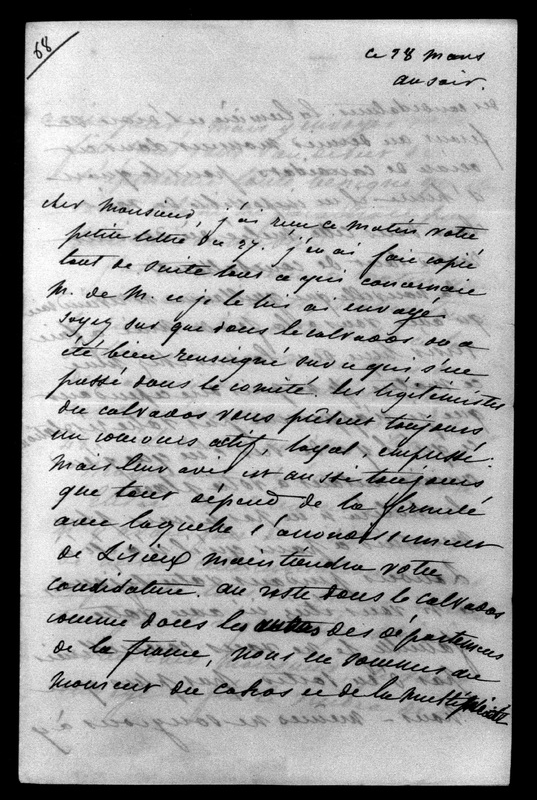 68
ce 28 mars
au soir.
cher Monsieur, j'ai reçu ce matin votre
petite lettre du 27. j'en ai fait copié
tout de suite tout ce qui concernait
M. de M. et je le lui ai envoyé
soyez sur que dans le calvados on a
été bien renseigné sur ce qui s'est
passé dans le comité. les légitimistes
du calvados vous prêtent toujours
un concours actif, loyal, empressé.
mais leur avis est aussi toujours
que tout dépend de la fermeté
avec laquelle l'arrondissement
de Lisieux maintiendra votre
candidature. au reste dans le calvados
comme dans les des départemens
de la france, nous en sommes au
moment du cahos et de la multiplicité